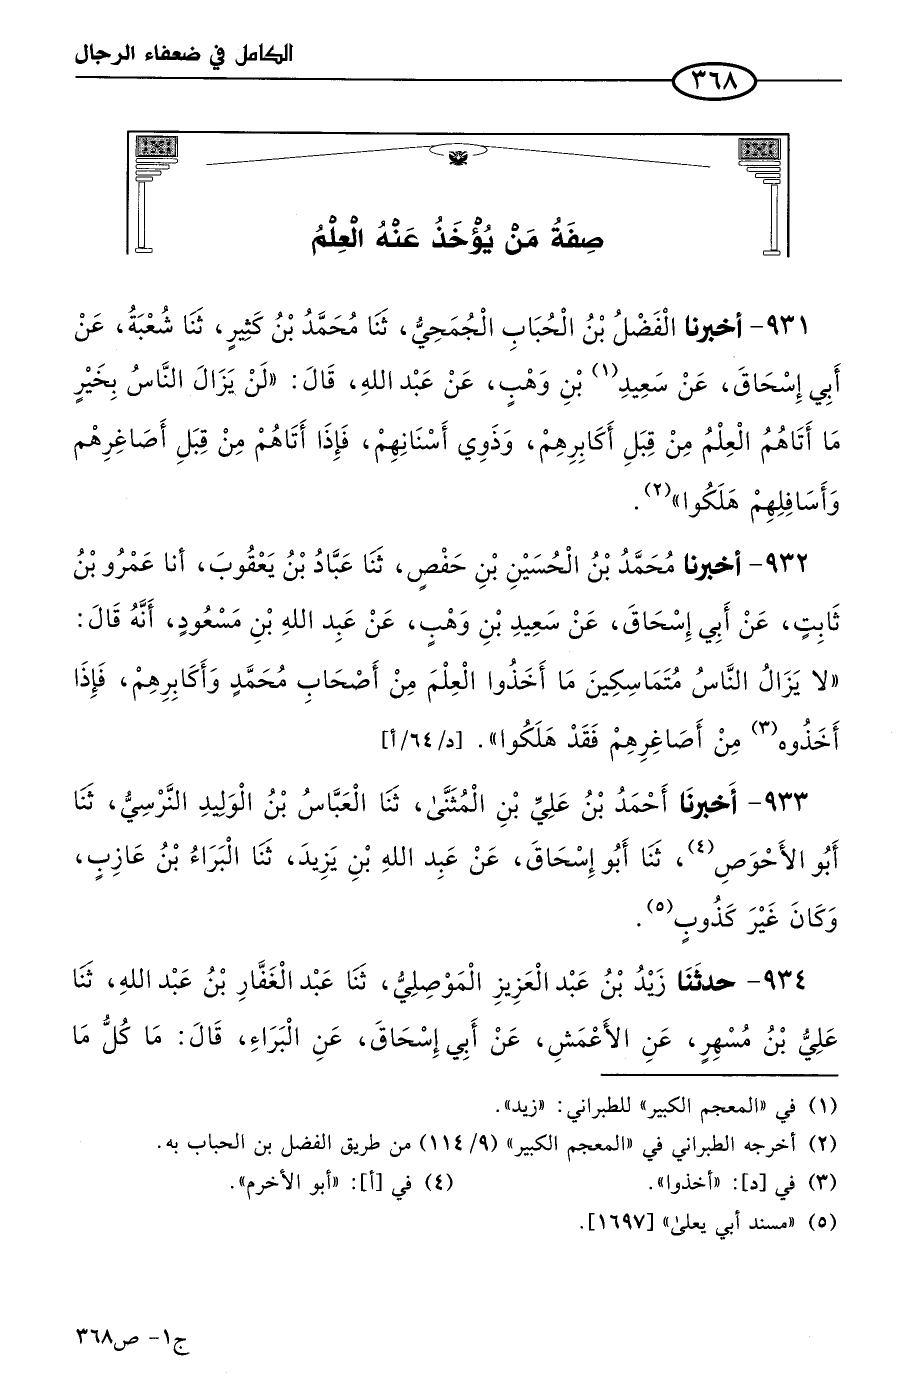 الكامل في ضعفاء الرجال
٣٦٨
صِفَةُ مَنْ يُؤْخَذُ عَنْهُ الْعِلْمُ
٩٣١- أخبرنا الْفَضْلُ بْنُ الْحُبَابِ الْجُمَحِيُّ، ثَنَا مُحَمَّدُ بْنُ كَثِيرٍ، ثَنَا شُعْبَةُ، عَنْ
أَبِي إِسْحَاقَ، عَنْ سَعِيدِ(١) بْنِ وَهْبٍ، عَنْ عَبْدِ اللهِ، قَالَ: «لَنْ يَزَالَ النَّاسُ بِخَيْرٍ
مَا أَتَاهُمُ الْعِلْمُ مِنْ قِبَلِ أَكَابِرِهِمْ، وَذَوِي أَسْنَانِهِمْ، فَإِذَا أَتَاهُمْ مِنْ قِبَلِ أَصَاغِرِهْم
وَأَسَافِلِهِمْ هَلَكُوا»(٢).
٩٣٢- أخبرنا مُحَمَّدُ بْنُ الْحُسَيْنِ بْنِ حَفْصٍ، ثَنَا عَبَّادُ بْنُ يَعْقُوبَ، أنا عَمْرُو بْنُ
ثَابِتٍ، عَنْ أَبِي إِسْحَاقَ، عَنْ سَعِيدِ بْنِ وَهْبٍ، عَنْ عَبِد اللهِ بْنِ مَسْعُودٍ، أَنَّهُ قَالَ:
«لا يَزَالُ النَّاسُ مُتَمَاسِكِينَ مَا أَخَذُوا الْعِلْمَ مِنْ أَصْحَابِ مُحَمَّدٍ وَأَكَابِرِهِمْ، فَإِذَا
أَخَذُوه(٣) مِنْ أَصَاغِرِهِمْ فَقَدْ هَلَكُوا». [د/٦٤/أ]
٩٣٣- أَخبرنَا أَحْمَدُ بْنُ عَلِيِّ بْنِ الْمُثَنَّىٰ، ثَنَا الْعَبَّاسُ بْنُ الْوَلِيدِ النَّرْسِيُّ، ثَنَا
أَبُو الأَحْوَصِ(٤)، ثَنَا أَبُو إِسْحَاقَ، عَنْ عَبِد اللهِ بْنِ يَزِيدَ، ثَنَا الْبَرَاءُ بْنُ عَازِبٍ،
وَكَانَ غَيْرَ كَذُوبٍ(٥).
٩٣٤- حدثَنَا زَيْدُ بْنُ عَبْدِ الْعَزِيزِ الْمَوْصِلِيُّ، ثَنَا عَبْدِ الْغَفَّارِ بْنُ عَبْدِ اللهِ، ثَنَا
عَلِيُّ بْنُ مُسْهِرٍ، عَنِ الأَعْمَشِ، عَنْ أَبِي إِسْحَاقَ، عَنِ الْبَرَاءِ، قَالَ: مَا كُلُّ مَا
(١) في «المعجم الكبير» للطبراني: «زيد».
(٢) أخرجه الطبراني في «المعجم الكبير» (٩/ ١١٤) من طريق الفضل بن الحباب به.
(٣) في [د]: «أخذوا». (٤) في [أ]: «أبو الأخرم».
(٥) «مسند أبي يعلىٰ» [١٦٩٧].
ج١- ص٣٦٨